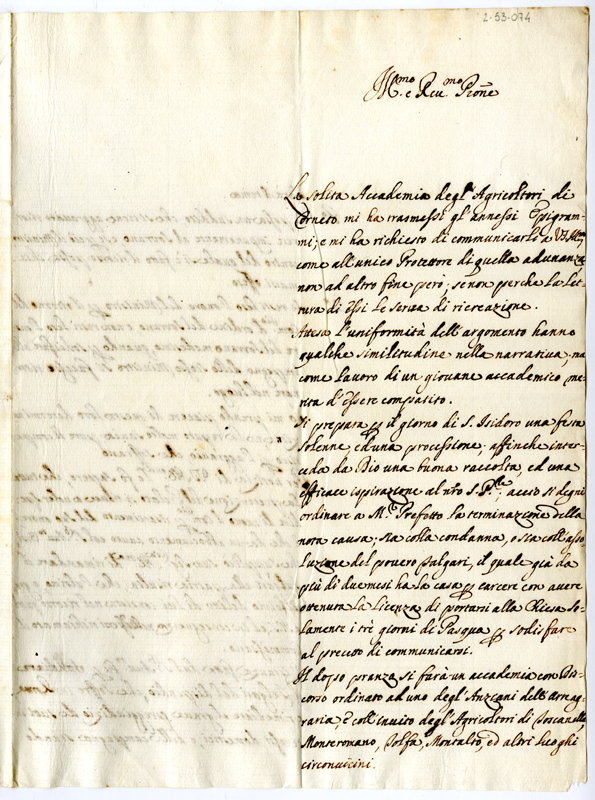 2-53-074
Ill.mo e Rev.mo Prone
La solita Accademia degl'Agricoltori di
Corneto mi ha trasmessi gl'annessi Epigram-
mi; e mi ha richiesto di communicarli a VS Ill.ma
come all'unico Protettore di quella adunanza
non ad altro fine però, se non perche la Let-
tura di essi le serva di ricreazione.
Attesa l'uniformità dell'argomento hanno
qualche similitudine nella narrativa, ma
come lavoro di un giovane accademico me-
rita d'essere compatito.
Si prepara p il giorno di S. Isidoro una festa
solenne, ed una processione; affinche inter-
ceda da Dio una buona raccolta, ed una
efficace ispirazione al nro S. P.re, acciò si degni
ordinare a M.r Prefetto la terminazione della
nota causa; sia colla condanna, o sia coll'asso
luzione del povero Salgari, il quale già da
più di due mesi ha la casa p carcere con avere
ottenuta la licenza di portarsi alla Chiesa so-
lamente i trè giorni di Pasqua p sodisfare
al precetto di communicarsi.
Il dopo pranzo si farà un accademia con Dis-
corso ordinato ad uno degl'Anziani dell'Annag-
raria, e coll'invito degl'Agricoltori di Toscanella
Monteromano, Tolfa, Montalto, ed altri luoghi
circonvicini.